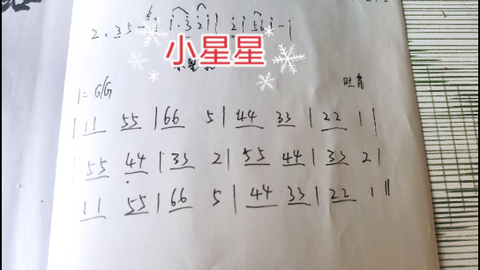 2. 35 - | 1·3 21 | 21 561 - |
小星星
小星星
1=G/G 吐音
| 11 55 | 66 5 | 44 33 | 22 1 |
| 55 44 | 33 2 | 55 44 | 33 2 |
11 55 | 66 5 | 44 33 | 22 1 ||